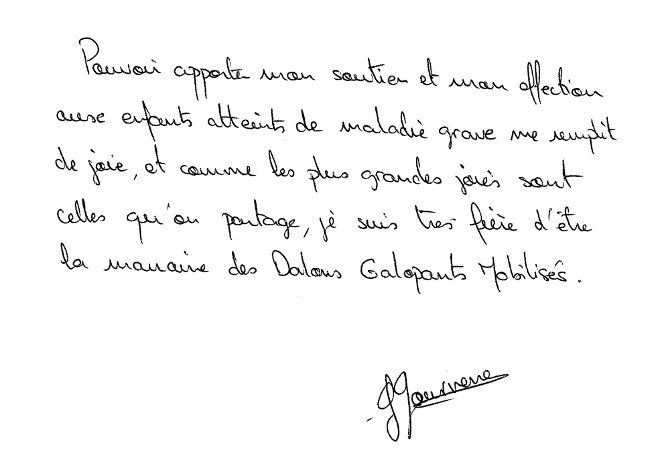 Pouvoir apporter mon soutien et mon affection
aux enfants atteints de maladie grave me remplit
de joie, et comme les plus grandes joies sont
celles qu'on partage, je suis très fière d'être
la marraine des Dalons Galopants Mobilisés.